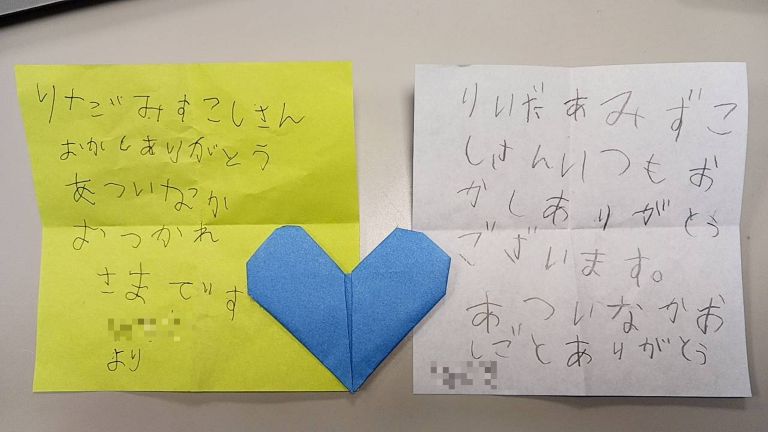 りたごみずこしさん
おかしありがとう
あついなか
おつかれ
さまです
より
りいだぁみずこ
しさんいつもお
かしありがとう
ございます。
あついなかお
しごとありがとう